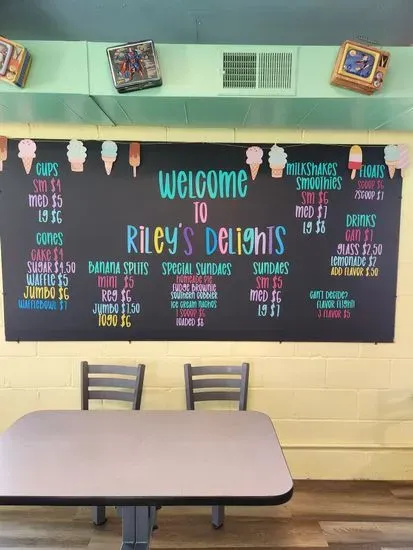 CUPS
SM $4
MED $5
LG $6
CONES
CAKE $4
SUGAR $4.50
WAFFLE $5
JUMBO $6
WAFFLEBOWL $7
WELCOME
TO
RILEY'S DELIGHTS
BANANA SPLITS
MINI $5
REG $6
JUMBO $7.50
TOGO $6
SPECIAL SUNDAES
HOMEMADE PIE
FUDGE BROWNIE
SOUTHERN COBBLER
ICE CREAM NACHOS
1 SCOOP $6
LOADED $8
SUNDAES
SM $5
MED $6
LG $7
MILKSHAKES
SMOOTHIES
SM $6
MED $7
LG $8
FLOATS
1SCOOP $6
2SCOOP $7
DRINKS
CAN $1
GLASS $2.50
LEMONADE $7
ADD FLAVOR $.50
CAN'T DECIDE?
FLAVOR FLIGHT!
3 FLAVOR $5